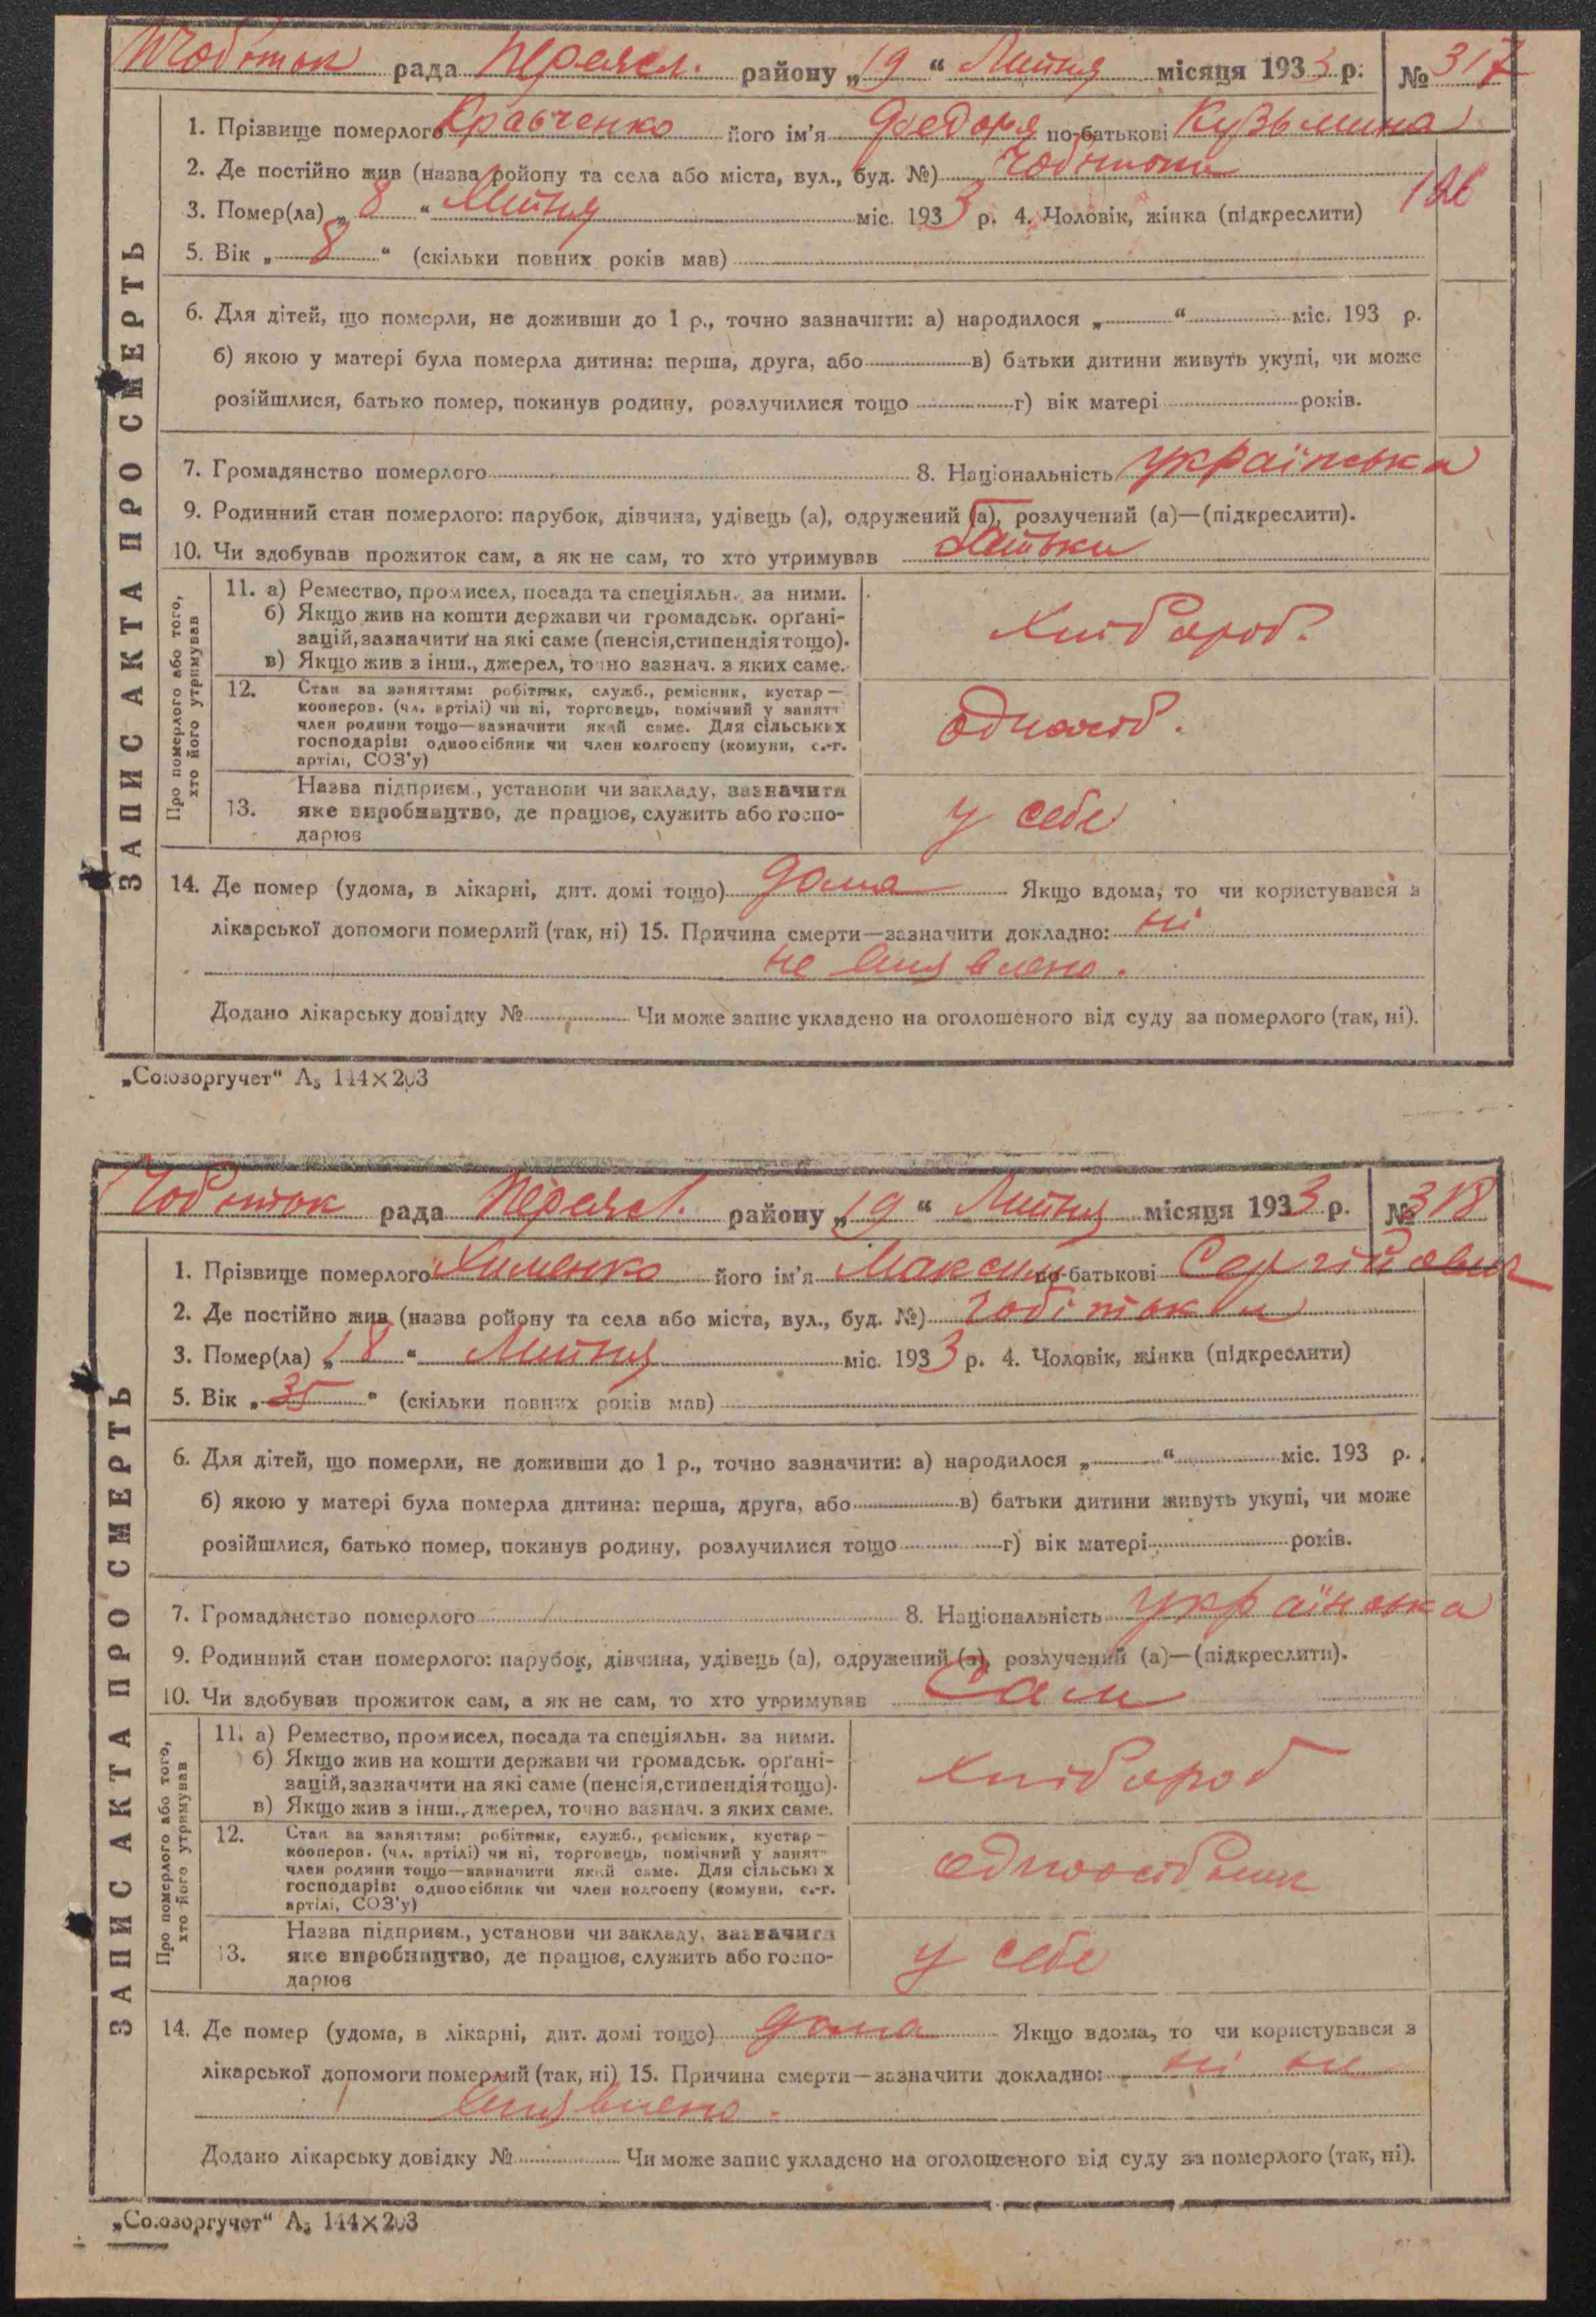 Чобіток рада Переясл. району „19“ Липня місяця 1933 р. № 317
1. Прізвище померлого Кравченко його ім'я Федора по-батькові Кузьмина
2. Де постійно жив (назва ройону та села або міста, вул., буд. №) Чобітьки
126
3. Помер(ла) „8“ Липня міс. 1933 р. 4. Чоловік, жінка (підкреслити)
5. Вік „8“ (скільки повних років мав)
6. Для дітей, що померли, не доживши до 1 р., точно зазначити: а) народилося „ “ міс. 193 р.
б) якою у матері була померла дитина: перша, друга, або в) батьки дитини живуть укупі, чи може
розійшлися, батько помер, покинув родину, розлучилися тощо г) вік матері років.
7. Громадянство померлого 8. Національність українська
9. Родинний стан померлого: парубок, дівчина, удівець (а), одружений (а), розлучений (а)—(підкреслити).
10. Чи здобував прожиток сам, а як не сам, то хто утримував батьки
11. а) Ремество, промисел, посада та спеціяльн. за ними.
б) Якщо жив на кошти держави чи громадськ. орґані-
зацій, зазначити на які саме (пенсія, стипендія тощо).
в) Якщо жив з інш., джерел, точно зазнач. з яких саме.
хлібороб.
12. Стан за заняттям: робітник, служб., ремісник, кустар —
кооперов. (чл. артілі) чи ні, торговець, помічний у занятт
член родини тощо—зазначити який саме. Для сільських
господарів: одноосібник чи член колгоспу (комуни, с.-г.
артілі, СОЗ'у)
одноосіб.
13. Назва підприєм., установи чи закладу, зазначити
яке виробництво, де працює, служить або госпо-
дарює
у себе
Про померлого або того,
хто його утримував
14. Де помер (удома, в лікарні, дит. домі тощо) дома Якщо вдома, то чи користувався з
лікарської допомоги померлий (так, ні) 15. Причина смерти—зазначити докладно: ні
не виявлено.
Додано лікарську довідку № Чи може запис укладено на оголошеного від суду за померлого (так, ні).
ЗАПИС АКТА ПРО СМЕРТЬ
„Союзоргучет“ А₅ 144×203
Чобіток рада Переясл. району „19“ Липня місяця 1933 р. № 318
1. Прізвище померлого Хименко його ім'я Максим по-батькові Сергійович
2. Де постійно жив (назва ройону та села або міста, вул., буд. №) Чобітьки
3. Помер(ла) „18“ Липня міс. 1933 р. 4. Чоловік, жінка (підкреслити)
5. Вік „35“ (скільки повних років мав)
6. Для дітей, що померли, не доживши до 1 р., точно зазначити: а) народилося „ “ міс. 193 р.
б) якою у матері була померла дитина: перша, друга, або в) батьки дитини живуть укупі, чи може
розійшлися, батько помер, покинув родину, розлучилися тощо г) вік матері років.
7. Громадянство померлого 8. Національність українська
9. Родинний стан померлого: парубок, дівчина, удівець (а), одружений (а), розлучений (а)—(підкреслити).
10. Чи здобував прожиток сам, а як не сам, то хто утримував Сам
11. а) Ремество, промисел, посада та спеціяльн. за ними.
б) Якщо жив на кошти держави чи громадськ. орґані-
зацій, зазначити на які саме (пенсія, стипендія тощо).
в) Якщо жив з інш., джерел, точно зазнач. з яких саме.
хлібороб
12. Стан за заняттям: робітник, служб., ремісник, кустар —
кооперов. (чл. артілі) чи ні, торговець, помічний у занятт
член родини тощо—зазначити який саме. Для сільських
господарів: одноосібник чи член колгоспу (комуни, с.-г.
артілі, СОЗ'у)
одноосібник
13. Назва підприєм., установи чи закладу, зазначити
яке виробництво, де працює, служить або госпо-
дарює
у себе
Про померлого або того,
хто його утримував
14. Де помер (удома, в лікарні, дит. домі тощо) дома Якщо вдома, то чи користувався з
лікарської допомоги померлий (так, ні) 15. Причина смерти—зазначити докладно: ні не
виявлено.
Додано лікарську довідку № Чи може запис укладено на оголошеного від суду за померлого (так, ні).
ЗАПИС АКТА ПРО СМЕРТЬ
„Союзоргучет“ А₅ 144×203